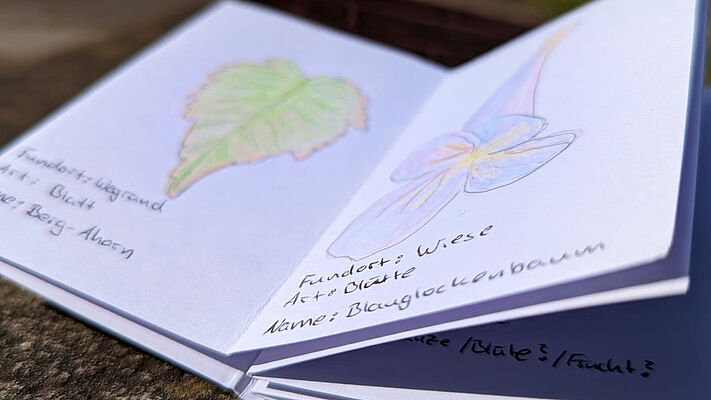 Fundort: Wegrand
Art: Blatt
Berg-Ahorn
Fundort: Wiese
Art: Blüte
Name: Blauglockenbaum
/Blüte?/Frucht?